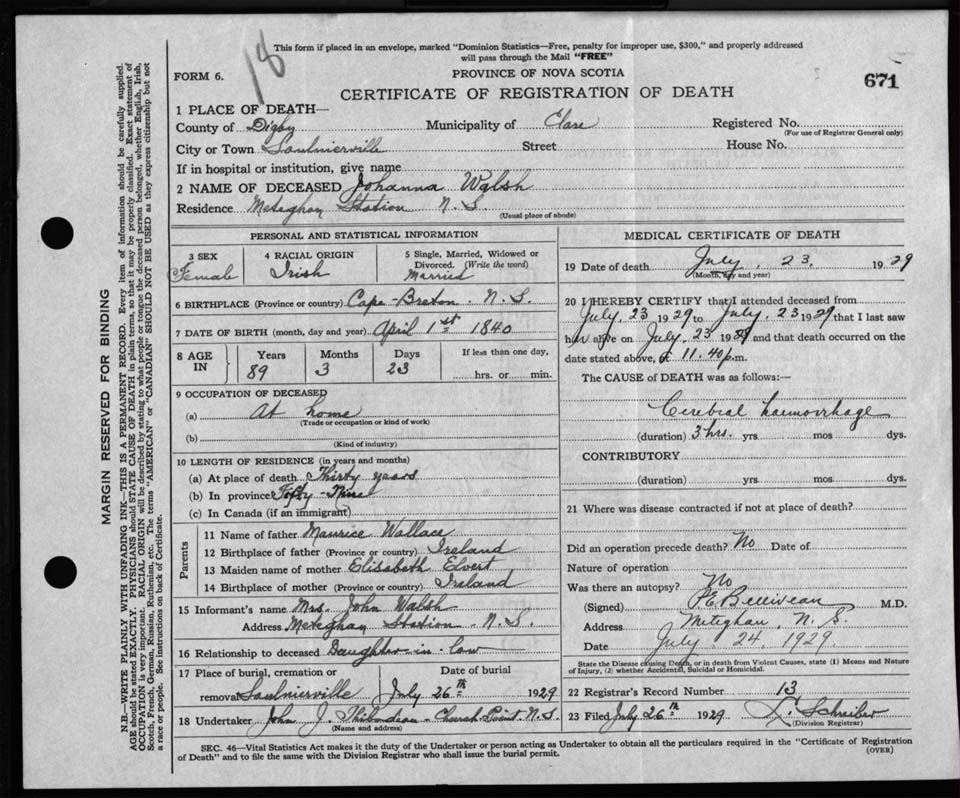 18
This form if placed in an envelope, marked "Dominion Statistics—Free, penalty for improper use, $300," and properly addressed
will pass through the Mail "FREE"
FORM 6.
PROVINCE OF NOVA SCOTIA
671
CERTIFICATE OF REGISTRATION OF DEATH
1 PLACE OF DEATH—
County of Digby Municipality of Clare Registered No.
(For use of Registrar General only)
City or Town Saulnierville Street House No.
If in hospital or institution, give name
2 NAME OF DECEASED Johanna Walsh
Residence Meteghan Station N.S.
(Usual place of abode)
PERSONAL AND STATISTICAL INFORMATION
3 SEX
Female
4 RACIAL ORIGIN
Irish
5 Single, Married, Widowed or
Divorced. (Write the word)
Married
6 BIRTHPLACE (Province or country) Cape-Breton. N.S.
7 DATE OF BIRTH (month, day and year) April 1st 1840
8 AGE IN
Years Months Days If less than one day,
89 3 23 hrs. or min.
9 OCCUPATION OF DECEASED
(a) At home
(Trade or occupation or kind of work)
(b)
(Kind of industry)
10 LENGTH OF RESIDENCE (in years and months)
(a) At place of death Thirty years
(b) In province Fifty-Nine
(c) In Canada (if an immigrant)
Parents
11 Name of father Maurice Wallace
12 Birthplace of father (Province or country) Ireland
13 Maiden name of mother Elisabeth Elvert
14 Birthplace of mother (Province or country) Ireland
15 Informant's name Mrs. John Walsh
Address Meteghan Station - N.S.
16 Relationship to deceased Daughter-in-law
17 Place of burial, cremation or Date of burial
removal Saulnierville July 26th 1929
18 Undertaker John J. Thibodeau - Church Point N.S.
(Name and address)
MEDICAL CERTIFICATE OF DEATH
19 Date of death July. 23. 1929
(Month, day and year)
20 I HEREBY CERTIFY that I attended deceased from
July. 23 1929 to July. 23 1929 that I last saw
her alive on July. 23 1929 and that death occurred on the
date stated above, at 11.40 p.m.
The CAUSE of DEATH was as follows:—
Cerebral haemorrhage
(duration) 3 hrs. yrs. mos. dys.
CONTRIBUTORY
(duration) yrs. mos. dys.
21 Where was disease contracted if not at place of death?
Did an operation precede death? No Date of
Nature of operation
Was there an autopsy? No
(Signed) P.E. Belliveau M.D.
Address Meteghan, N.S.
Date July 24, 1929.
State the Disease causing Death, or in death from Violent Causes, state (1) Means and Nature
of Injury, (2) whether Accidental, Suicidal or Homicidal.
22 Registrar's Record Number 13
23 Filed July 26th 1929 L. Schreiber
(Division Registrar)
SEC. 46—Vital Statistics Act makes it the duty of the Undertaker or person acting as Undertaker to obtain all the particulars required in the "Certificate of Registration
of Death" and to file the same with the Division Registrar who shall issue the burial permit. (OVER)
MARGIN RESERVED FOR BINDING
N.B.—WRITE PLAINLY WITH UNFADING INK—THIS IS A PERMANENT RECORD. Every item of information should be carefully supplied.
AGE should be stated EXACTLY. PHYSICIANS should STATE CAUSE OF DEATH in plain terms, so that it may be properly classified. Exact statement of
OCCUPATION is very important. RACIAL ORIGIN will be described by stating to what people or tongue the deceased person belonged, whether English, Irish,
Scotch, French, German, Russian, Ruthenian, etc. The terms "AMERICAN" or "CANADIAN" SHOULD NOT BE USED as they express citizenship but not
a race or people. See instructions on back of Certificate.